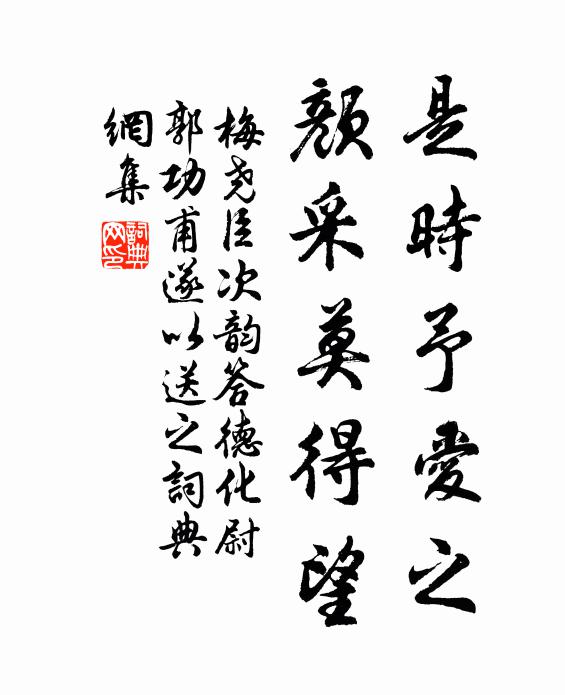 是時予愛之
顏采莫得望
梅尧臣次韵答德化尉
郭功甫遂以送之詞典
網集
詞典
网印